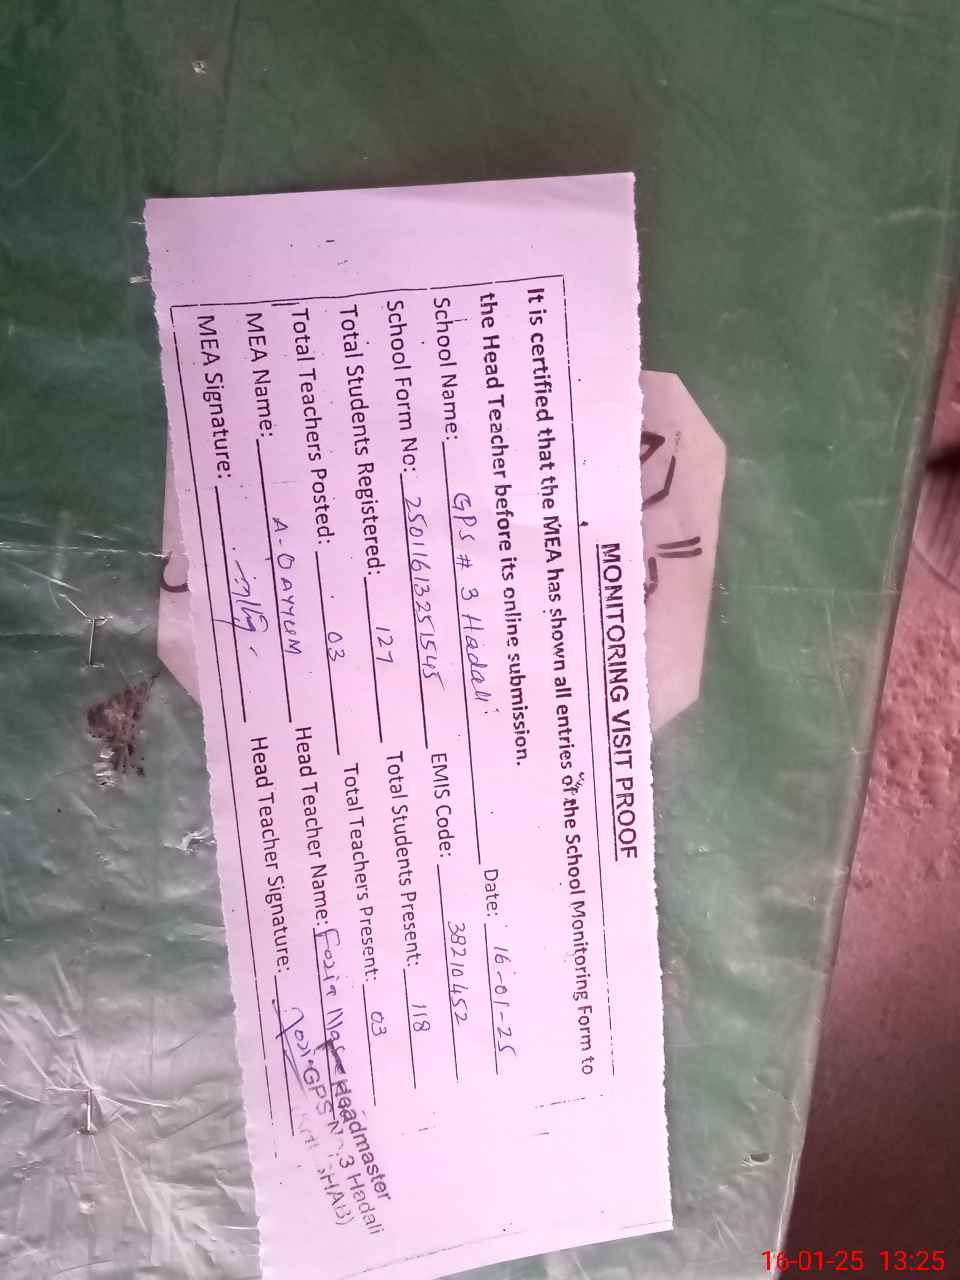 MONITORING VISIT PROOF
It is certified that the MEA has shown all entries of the School Monitoring Form to
the Head Teacher before its online submission.
School Name: GPS # 3 Hadali Date: 16-01-25
School Form No: 25011613251545 EMIS Code: 38210452
Total Students Registered: 127 Total Students Present: 118
Total Teachers Posted: 03 Total Teachers Present: 03
MEA Name: A-QAYYUM Head Teacher Name: Fozia
MEA Signature: Head Teacher Signature:
Headmaster
GPS No.3 Hadali
16-01-25 13:25